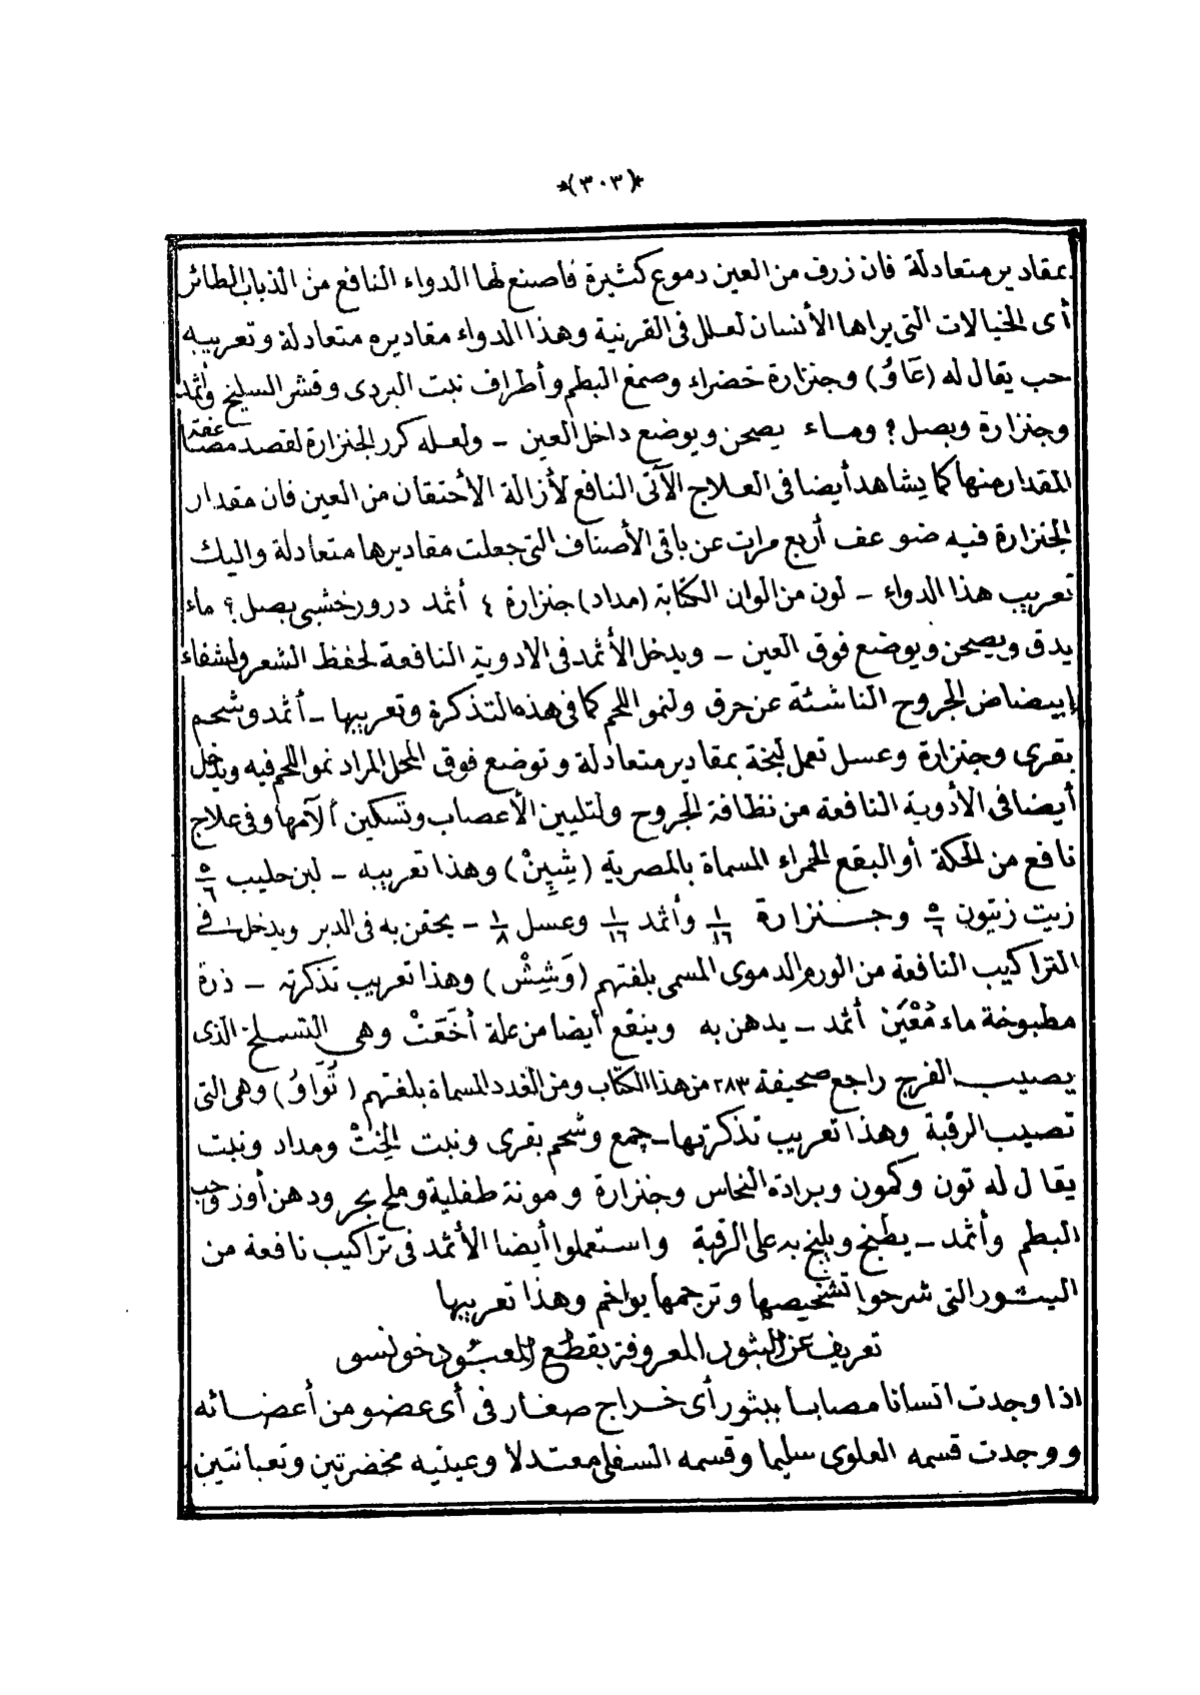 *(٣٠٣)*
بمقادير متعادلة فان زرف من العين دموع كثيرة فاصنع لها الدواء النافع من الذباب الطائر
أى الخيالات التى يراها الأنسان لعلل فى القرنية وهذا الدواء مقاديره متعادلة وتعريبه
حب يقال له (عَاوُ) وجنزارة خضراء وصمغ البطم وأطراف نبت البردى وقشر السليخ وأثمد
وجنزارة وبصل؟ وماء يصحن ويوضع داخل العين ــ ولعله كرر الجنزارة لقصد مضاعفة
المقدار منها كما يشاهد أيضا فى العلاج الآتى النافع لأزالة الأحتقان من العين فان مقدار
الجنزارة فيه ضوعف أربع مرات عن باقى الأصناف التى جعلت مقاديرها متعادلة واليك
تعريب هذا الدواء ــ لون من الوان الكتابة (مداد) جنزارة ٤ أثمد درور خشبى بصل؟ ماء
يدق ويصحن ويوضع فوق العين ــ ويدخل الأثمد فى الادوية النافعة لحفظ الشعر ولشفاء
إبيضاض الجروح الناشئة عن حرق ولنمو اللحم كما فى هذه التذكرة وتعريبها ــ أثمد وشحم
بقرى وجنزارة وعسل تعمل لبخة بمقادير متعادلة وتوضع فوق المحل المراد نمو اللحم فيه ويدخل
أيضا فى الأدوية النافعة من نظافة الجروح ولتليين الأعصاب وتسكين آلآمها وفى علاج
نافع من الحكة أو البقع الحمراء المسماة بالمصرية (شِپِينْ) وهذا تعريبه ــ لبن حليب ٥/٦
زيت زيتون ٥/٦ وجنزارة ١/١٦ وأثمد ١/١٦ وعسل ١/٨ ــ يحقن به فى الدبر ويدخل فى
التراكيب النافعة من الورم الدموى المسمى بلغتهم (وَشِيشْ) وهذا تعريب تذكرته ــ ذرة
مطبوخة ماء أثمد ــ يدهن به وينفع أيضا من علة أخَعَتْ وهى التسلخ الذى
يصيب الفرج راجع صحيفة ٢٨٣ من هذا الكتاب ومن الغدد المسماة بلغتهم (تُوَاوُ) وهى التى
تصيب الرقبة وهذا تعريب تذكرتها ــ جمع وشحم بقرى ونبت الخِتْ ومداد ونبت
يقال له تون وكمون وبرادة النحاس وجنزارة ومونة طفلية وملح بحر ودهن أوز وحب
البطم وأثمد ــ يطبخ ويلبخ به على الرقبة واستعملوا أيضا الأثمد فى تراكيب نافعة من
البثور التى شرحوا تشخيصها وترجمها يواخم وهذا تعريبها
تعريف عن البثور المعروفة بقطع المعبود خونسو
اذا وجدت انسانا مصابا ببثور أى خراج صغار فى أى عضو من أعضائه
ووجدت قسمه العلوى سليما وقسمه السفلى معتدلا وعينيه مخضرتين وتعبانتين